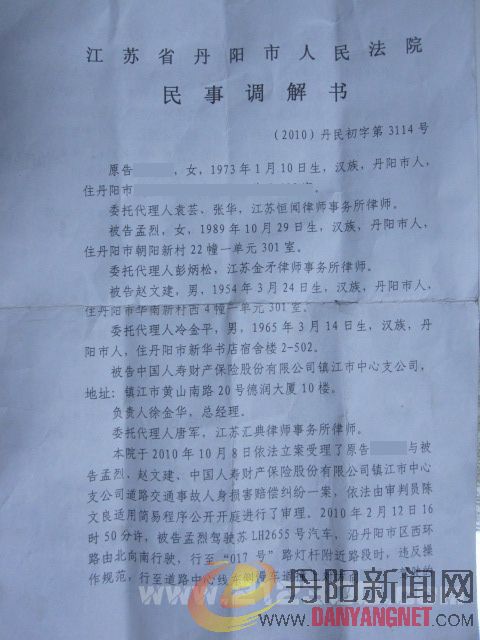 江苏省丹阳市人民法院
民事调解书
(2010)丹民初字第3114号
原告 ,女,1973年1月10日生,汉族,丹阳市人,
住丹阳市
委托代理人袁芸、张华,江苏恒闻律师事务所律师。
被告孟烈,女,1989年10月29日生,汉族,丹阳市人,
住丹阳市朝阳新村22幢一单元301室。
委托代理人彭炳松,江苏金矛律师事务所律师。
被告赵文建,男,1954年3月24日生,汉族,丹阳市人,
住丹阳市华南新村西4幢一单元301室。
委托代理人冷金平,男,1965年3月14日生,汉族,丹
阳市人,住丹阳市新华书店宿舍楼2-502。
被告中国人寿财产保险股份有限公司镇江市中心支公司,
地址:镇江市黄山南路20号德润大厦10楼。
负责人徐金华,总经理。
委托代理人唐军,江苏汇典律师事务所律师。
本院于2010年10月8日依法立案受理了原告 与被
告孟烈、赵文建、中国人寿财产保险股份有限公司镇江市中心
支公司道路交通事故人身损害赔偿纠纷一案,依法由审判员陈
文良适用简易程序公开开庭进行了审理。2010年2月12日16
时50分许,被告孟烈驾驶苏LH2655号汽车,沿丹阳市区西环
路由北向南行驶,行至“017号”路灯杆附近路段时,违反操
作规范,行至道路中心线东侧慢车道
丹阳新闻网
DANYANGNET.COM